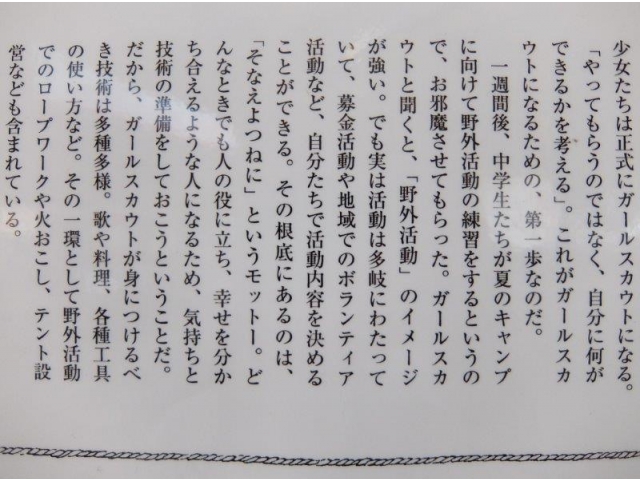 少女たちは正式にガールスカウトになる。
「やってもらうのではなく、自分に何が
できるかを考える」。これがガールスカ
ウトになるための、第一歩なのだ。
一週間後、中学生たちが夏のキャンプ
に向けて野外活動の練習をするというの
で、お邪魔させてもらった。ガールスカ
ウトと聞くと、「野外活動」のイメージ
が強い。でも実は活動は多岐にわたって
いて、募金活動や地域でのボランティア
活動など、自分たちで活動内容を決める
ことができる。その根底にあるのは、
「そなえよつねに」というモットー。ど
んなときでも人の役に立ち、幸せを分か
ち合えるような人になるため、気持ちと
技術の準備をしておこうということだ。
だから、ガールスカウトが身につけるべ
き技術は多種多様。歌や料理、各種工具
の使い方など。その一環として野外活動
でのロープワークや火おこし、テント設
営なども含まれている。